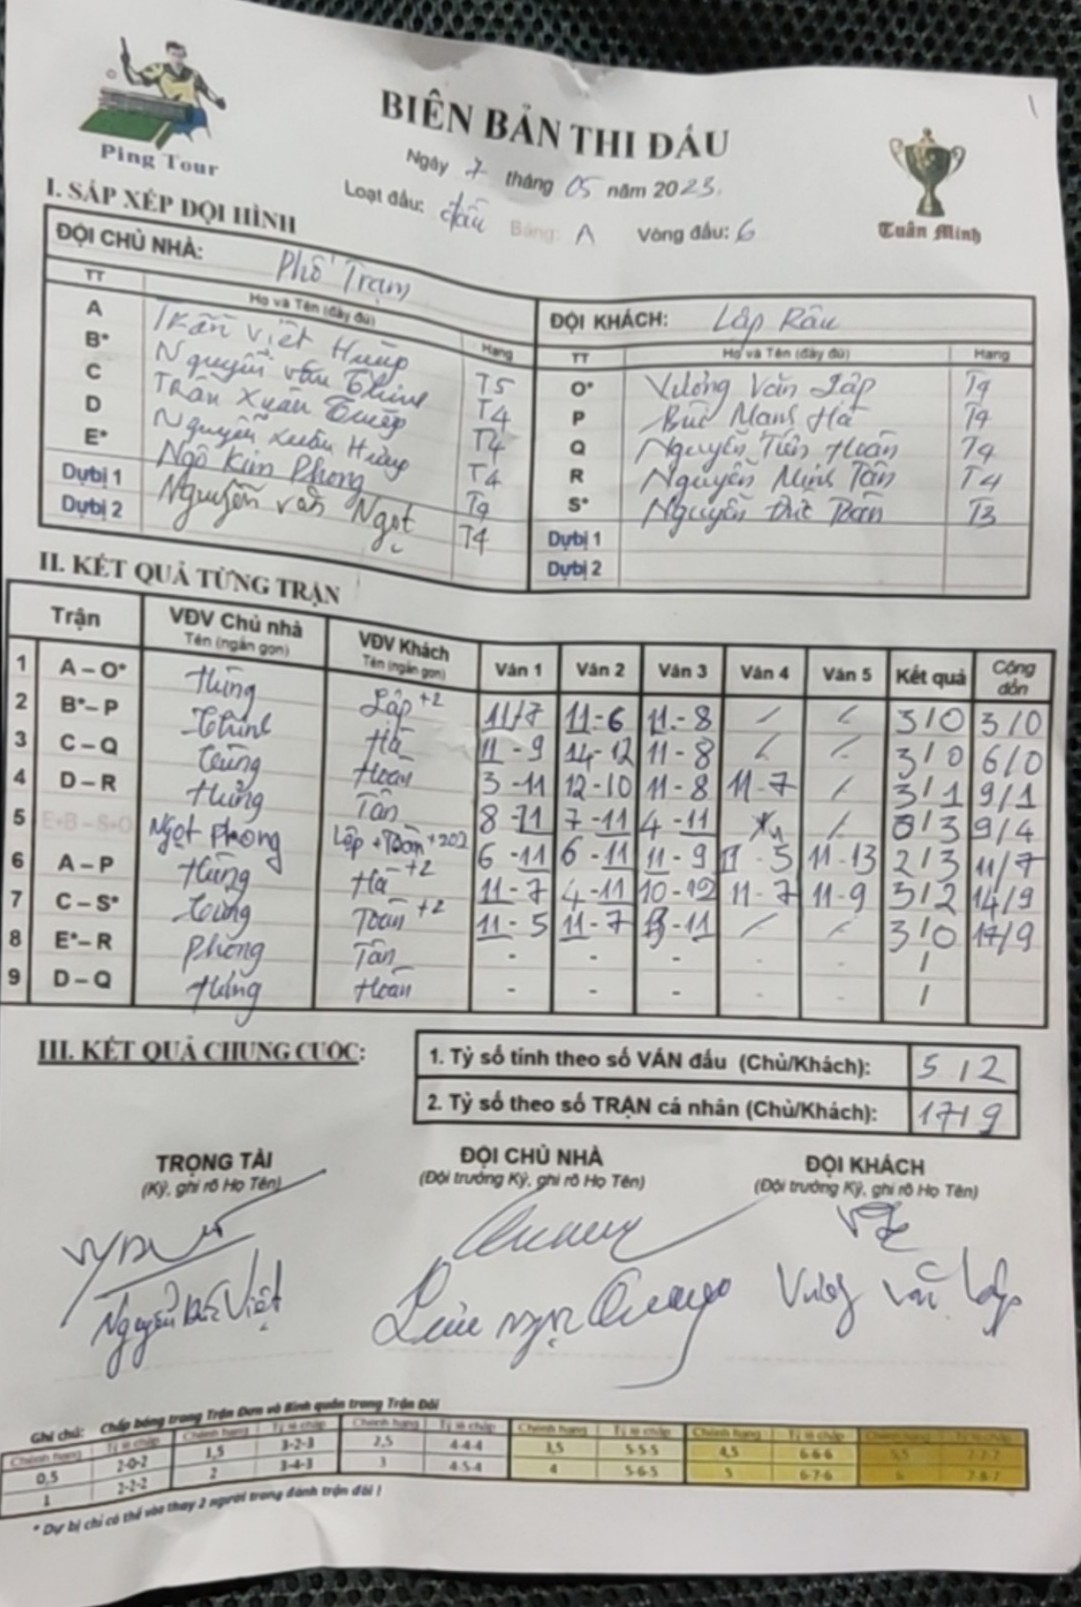 Ping Tour
BIÊN BẢN THI ĐẤU
Ngày 7 tháng 05 năm 2023.
Loạt đấu: đấu Bảng: A Vòng đấu: 6
Tuấn Minh
I. SẮP XẾP ĐỘI HÌNH
ĐỘI CHỦ NHÀ: Phố Trạm
TT Họ và Tên (đầy đủ) Hạng
A Trần Việt Hùng T5
B* Nguyễn Văn Thinh T4
C Trần Xuân T4
D Nguyễn Xuân Hùng T4
E* Ngô Kim Phong
Dự bị 1
Dự bị 2 Nguyễn Văn Ngọt T4
ĐỘI KHÁCH: Lập Râu
TT Họ và Tên (đầy đủ) Hạng
O* Vương Văn Lập T4
P Bùi Mạnh Hà T4
Q Nguyễn Tiến Hoàn T4
R Nguyễn Minh Tân T4
S* Nguyễn Đức Toàn T3
Dự bị 1
Dự bị 2
II. KẾT QUẢ TỪNG TRẬN
Trận VĐV Chủ nhà Tên (ngắn gọn) VĐV Khách Tên (ngắn gọn) Ván 1 Ván 2 Ván 3 Ván 4 Ván 5 Kết quả Cộng dồn
1 A – O* Hùng Lập +2 11/7 11-6 11-8 / / 3/0 3/0
2 B* – P Thinh Hà 11-9 14-12 11-8 / / 3/0 6/0
3 C – Q Hoàn 3-11 12-10 11-8 11-7 / 3/1 9/1
4 D – R Hùng Tân 8-11 7-11 4-11 / 0/3 9/4
5 E+B – S+O Ngọt Phong Lập + Toàn +202 6-11 6-11 11-9 11-5 11-13 2/3 11/7
6 A – P Hùng Hà +2 11-7 4-11 10-12 11-7 11-9 3/2 14/9
7 C – S* Toàn +2 11-5 11-7 13-11 / / 3/0 17/9
8 E* – R Phong Tân - - - - - /
9 D – Q Hùng Hoàn - - - - - /
III. KẾT QUẢ CHUNG CUỘC:
1. Tỷ số tính theo số VÁN đấu (Chủ/Khách): 5/2
2. Tỷ số theo số TRẬN cá nhân (Chủ/Khách): 17/9
TRỌNG TÀI
(Ký, ghi rõ Họ Tên)
ĐỘI CHỦ NHÀ
(Đội trưởng Ký, ghi rõ Họ Tên)
ĐỘI KHÁCH
(Đội trưởng Ký, ghi rõ Họ Tên)
Nguyễn Đức Việt
Vương Văn Lập
Ghi chú: Chấp bóng trong Trận Đơn và Bình quân trong Trận Đôi
Chênh hạng Tỷ lệ chấp Chênh hạng Tỷ lệ chấp Chênh hạng Tỷ lệ chấp Chênh hạng Tỷ lệ chấp Chênh hạng Tỷ lệ chấp Chênh hạng Tỷ lệ chấp
0,5 2-0-2 1,5 3-2-3 2,5 4-4-4 3,5 5-5-5 4,5 6-6-6 5,5 7-7-7
1 2-2-2 2 3-4-3 3 4-5-4 4 5-6-5 5 6-7-6 6 7-8-7
* Dự bị chỉ có thể vào thay 2 người trong đánh trận đôi !